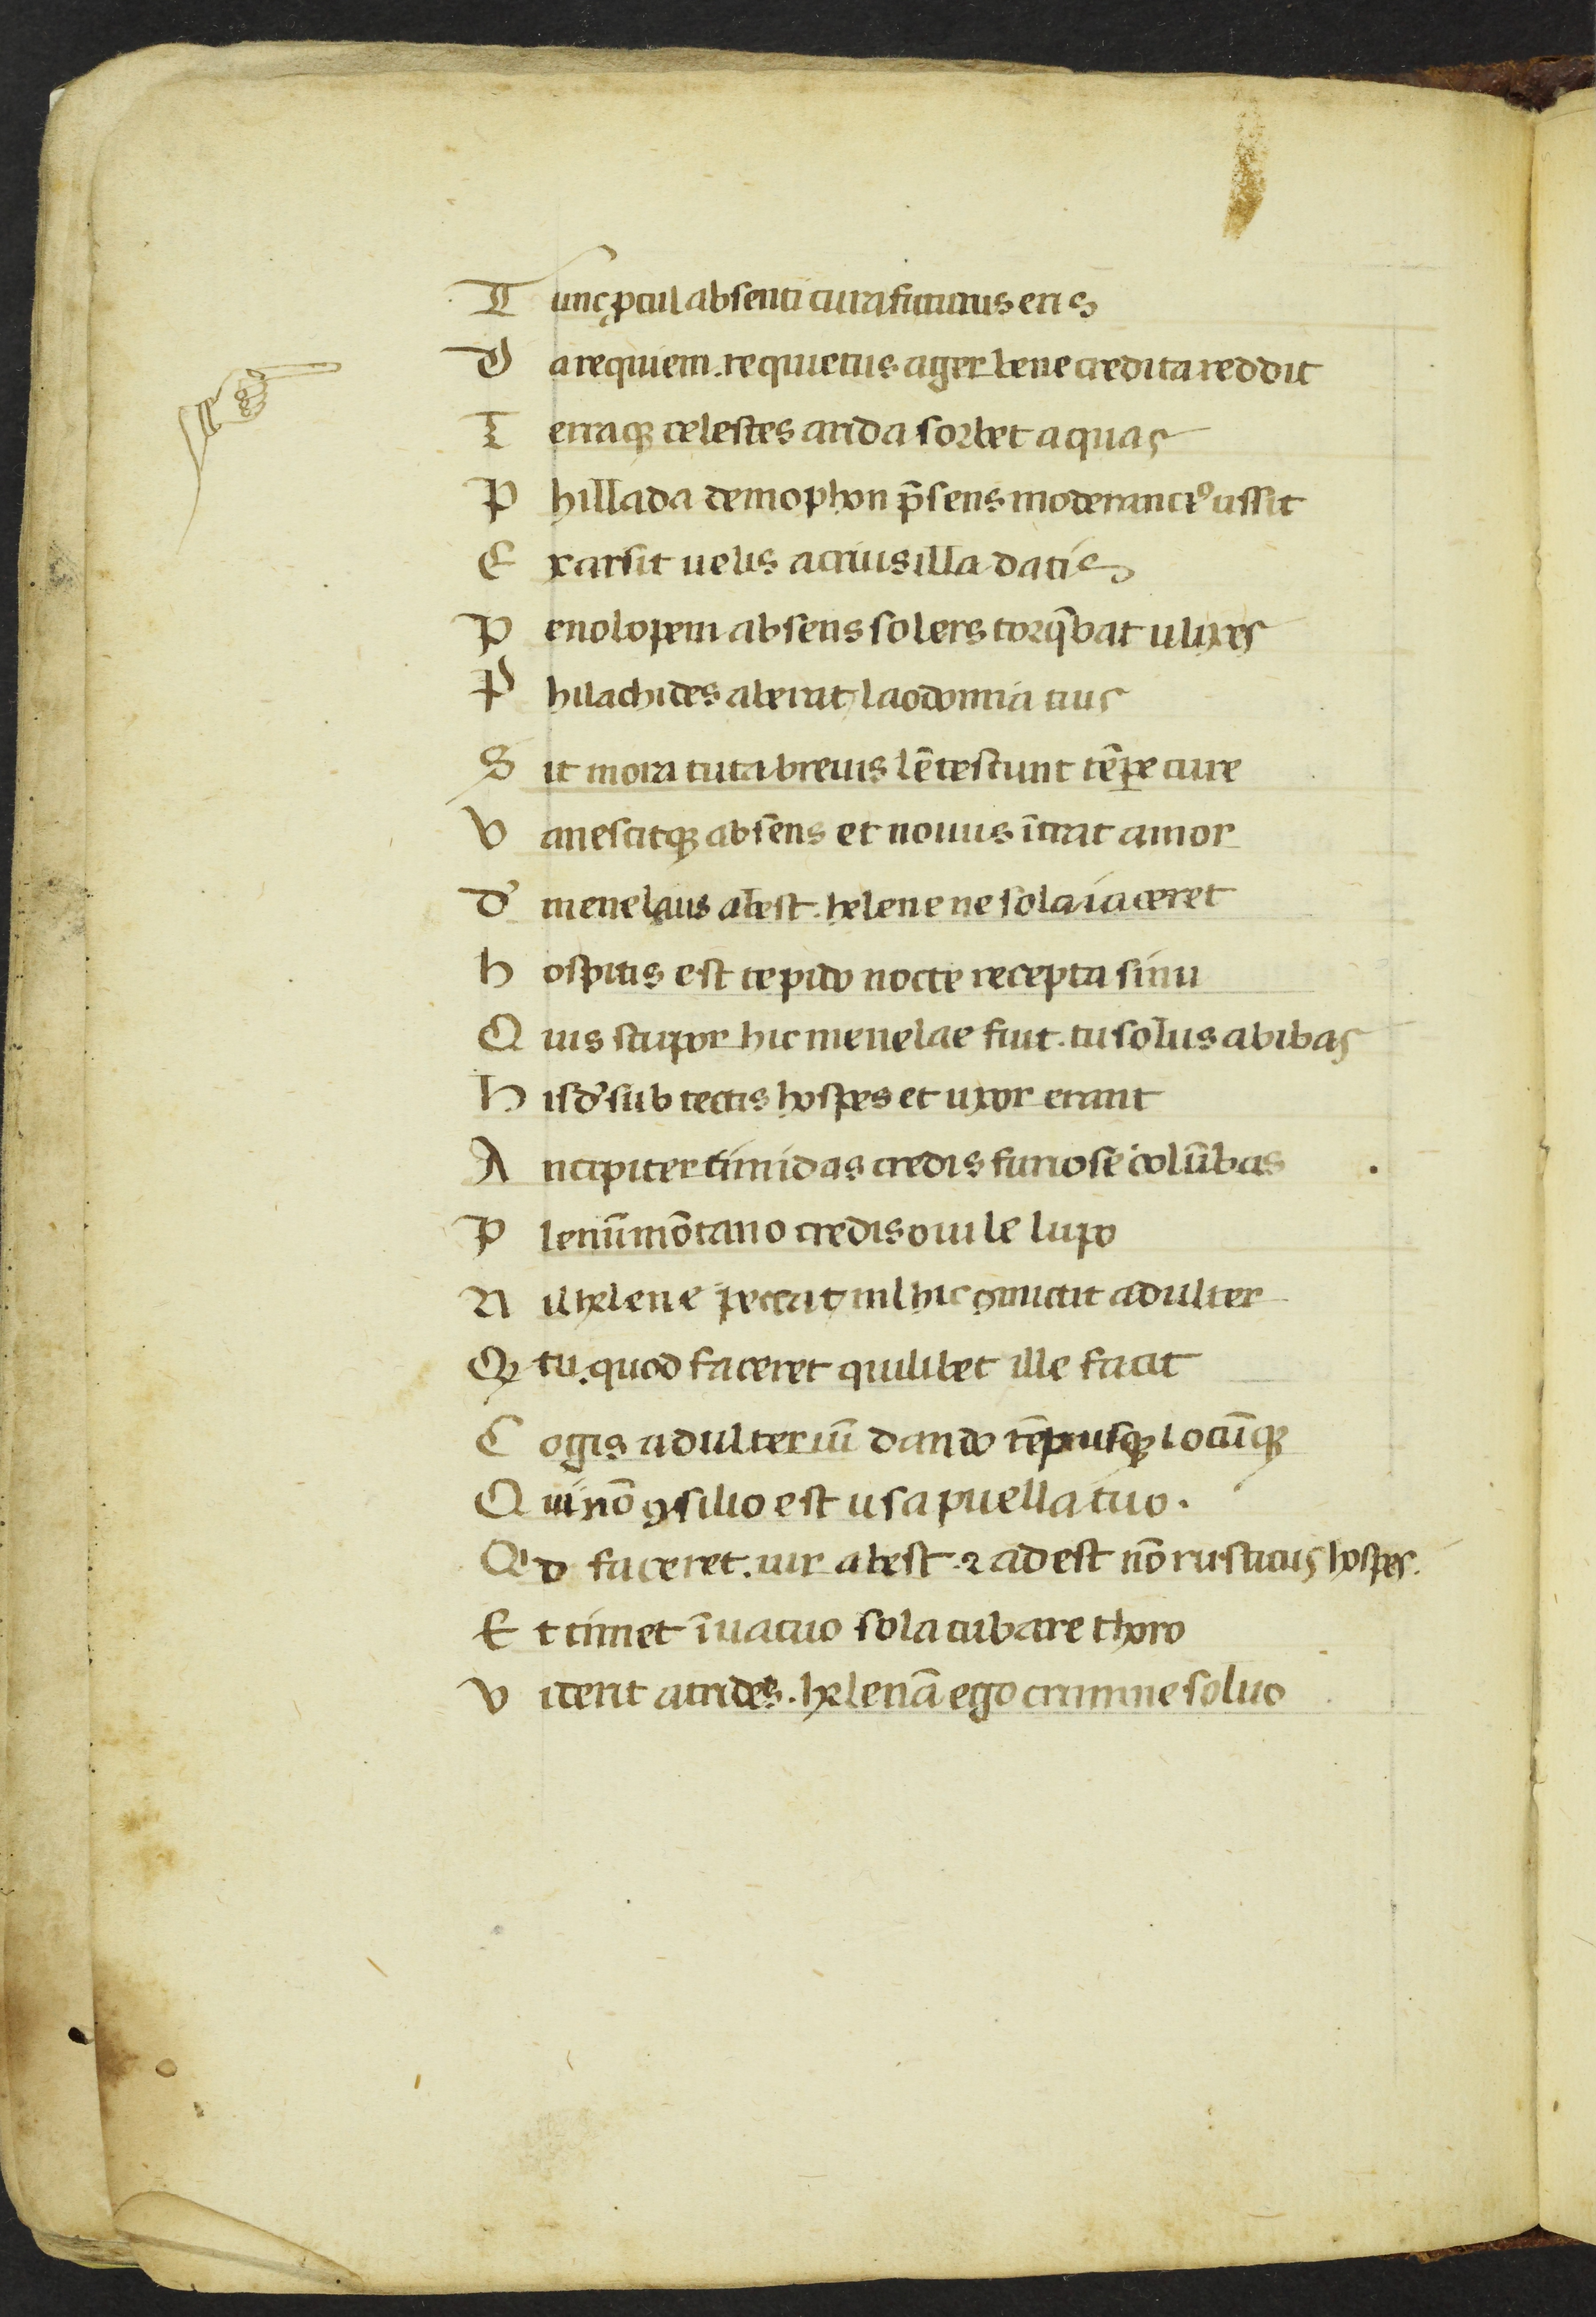 Tunc ꝓcul absenti cura futurus eris
Da requiem. requietus ager bene credita reddit
Terraqꝫ celestes arida sorbet aquas
Phillada demophon p̄sens moderanciꝰ ussit
Exarsit uelis acrius illa datis
Penolopem absens solers torq̄bat ulixes
Philachides aberat laodomia tuus
Sit mora tuta breuis lētescunt tēꝑe cure
Vanescitqꝫ absens et nouus ītrat amor
Dū menelaus abest. helene ne sola iaceret
hospitis est tepido nocte recepta sinu
Quis stupor hic menelae fuit. tu solus abibas
Hisdē sub tectis hospes et uxor erant
Ancipiter timidas credis furiose colūbas
Plenū mōtano credis ouile lupo
Nil helene peccat nil hic ꝯmictit adulter
Qꝫ tu. quod faceret quilibet ille facit
Cogis adulteriū dando tēpusqꝫ locūqꝫ
Qui nō ꝯsilio est usa puella tuo.
Qid faceret. uir abest ⁊ adest nō rusticus hospes.
Et timet ī uacuo sola cubare thoro
Viderit atrides. helenā ego crimine soluo